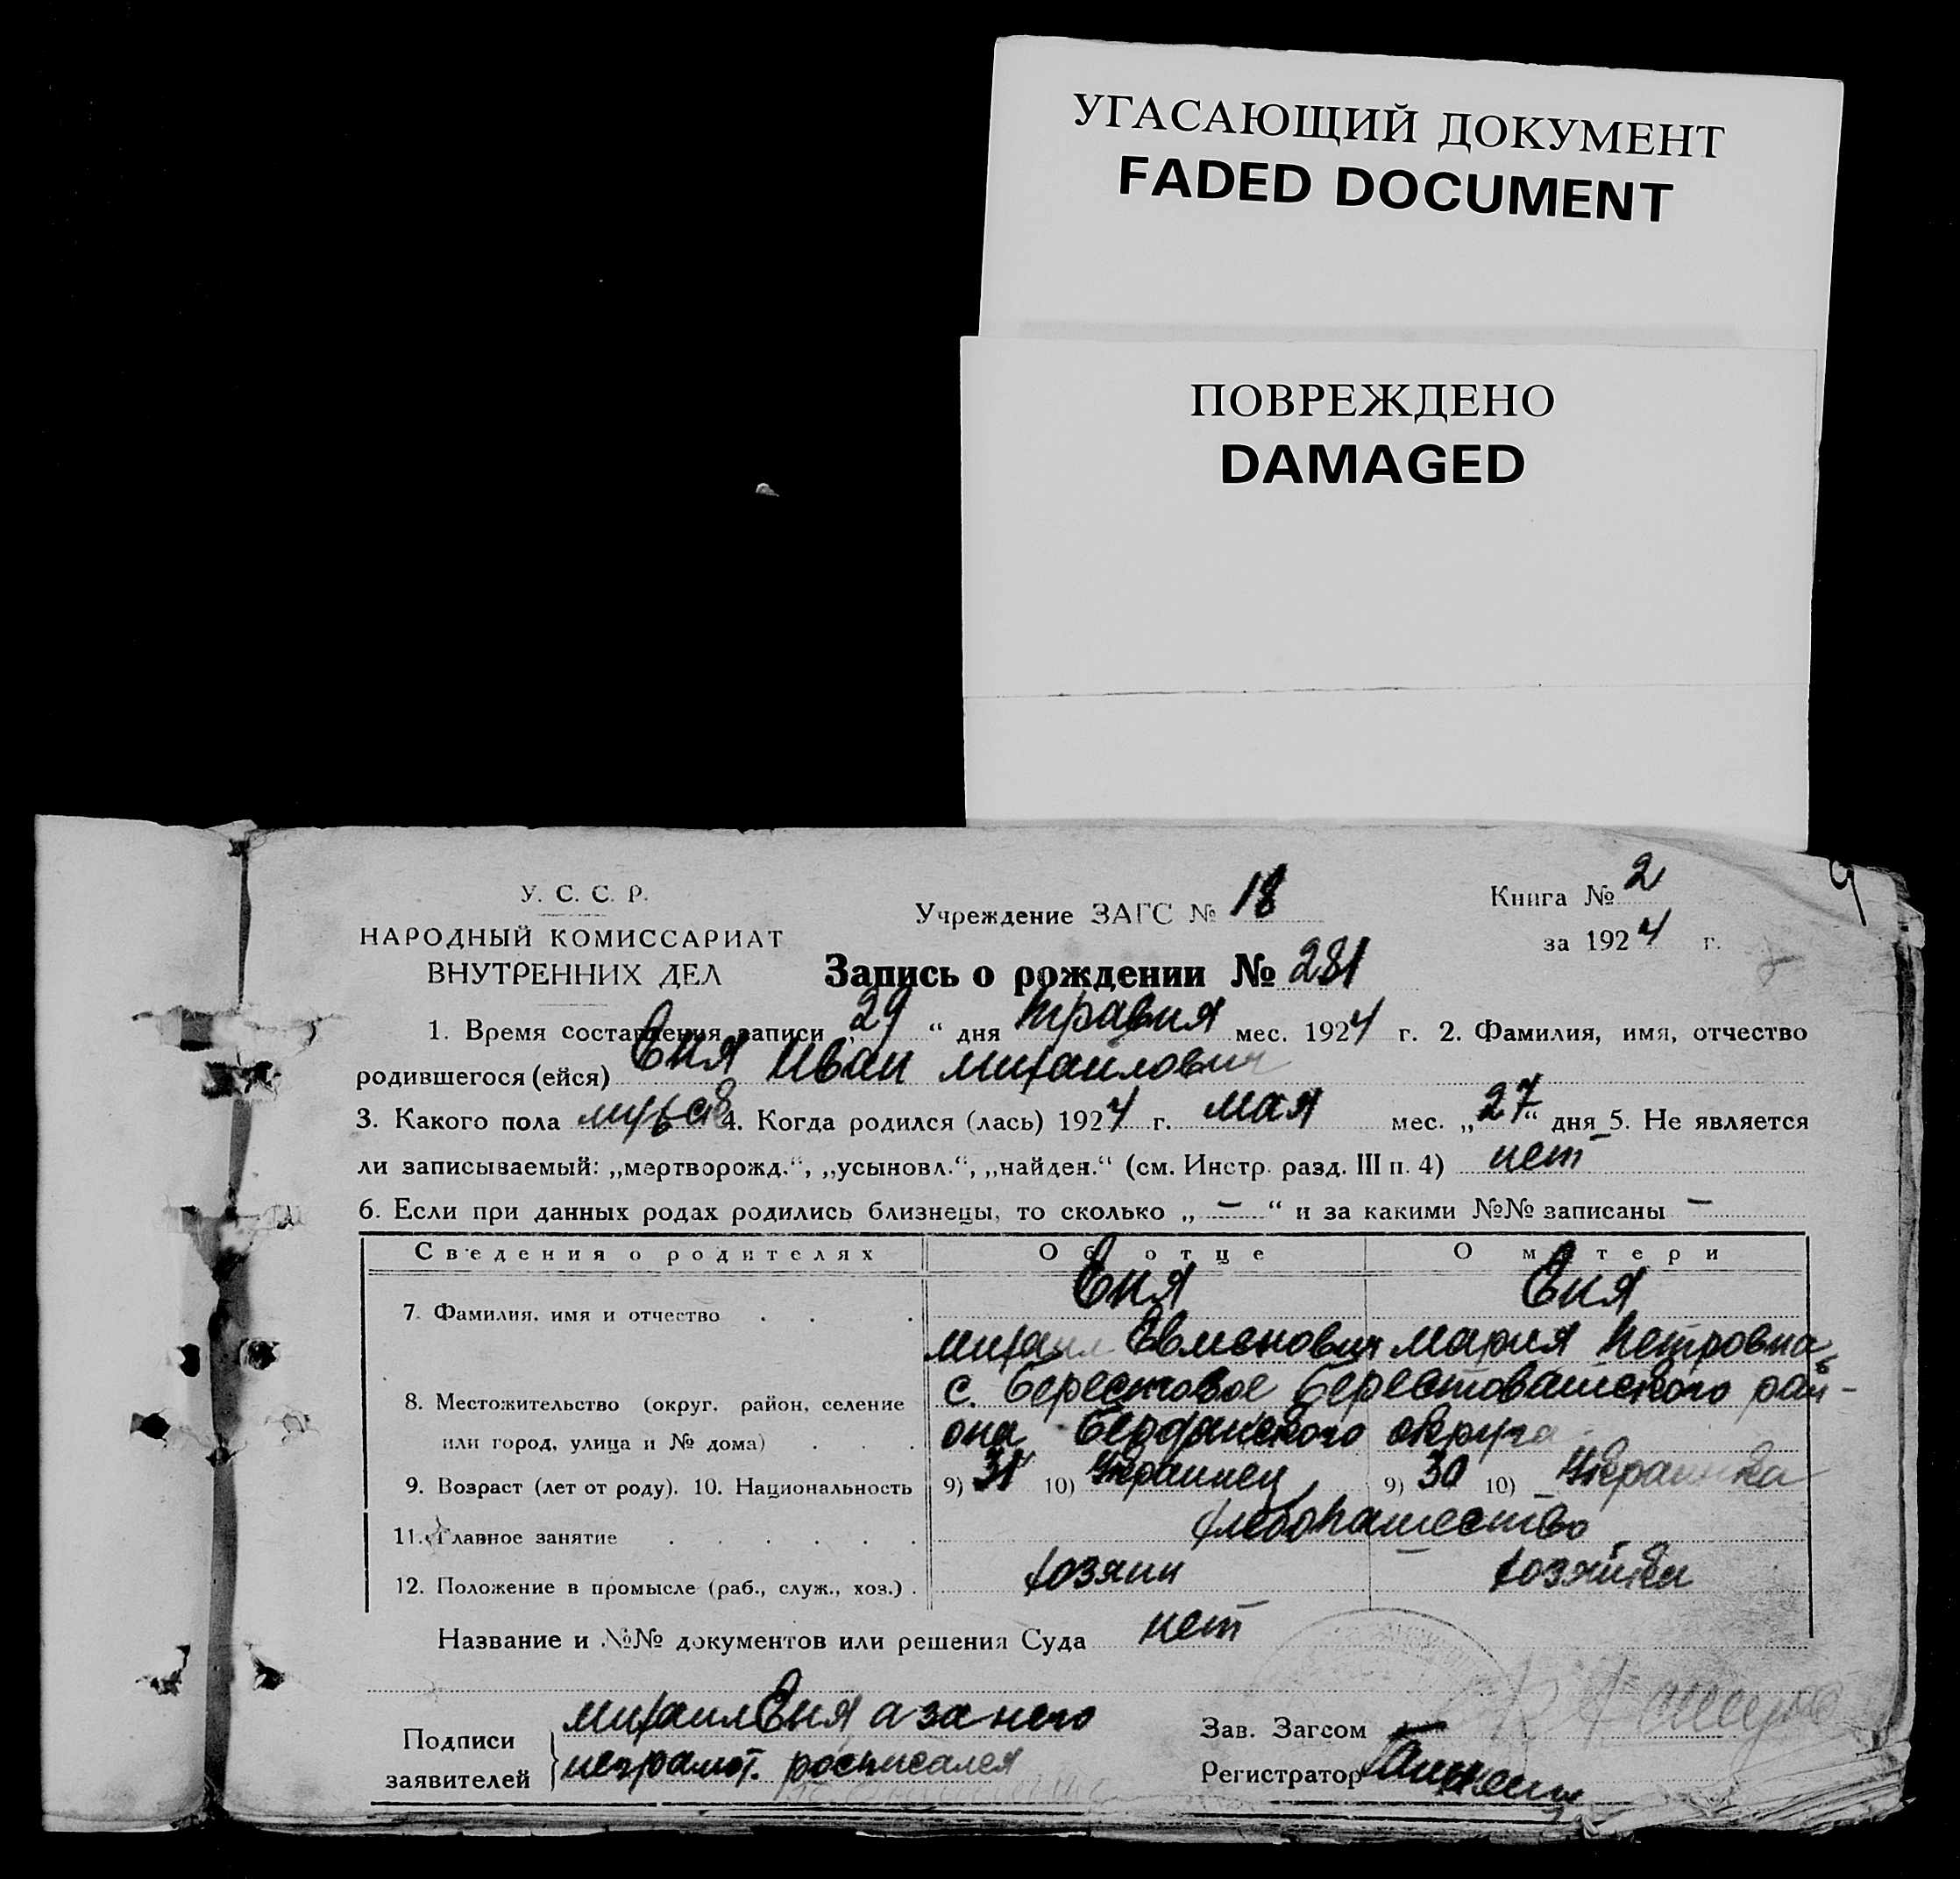 УГАСАЮЩИЙ ДОКУМЕНТ
FADED DOCUMENT
ПОВРЕЖДЕНО
DAMAGED
У. С. С. Р.
НАРОДНЫЙ КОМИССАРИАТ
ВНУТРЕННИХ ДЕЛ
Учреждение ЗАГС № 18
Книга № 2
за 1924 г.
9
Запись о рождении № 281
1. Время составления записи „29“ дня травня мес. 1924 г. 2. Фамилия, имя, отчество
родившегося (ейся) Еня Иван Михайлович
3. Какого пола 4. Когда родился (лась) 1924 г. мая мес. „27“ дня 5. Не является
ли записываемый: „мертворожд.“, „усыновл.“, „найден.“ (см. Инстр. разд. III п. 4) нет
6. Если при данных родах родились близнецы, то сколько „ – “ и за какими №№ записаны –
Сведения о родителях Об отце О матери
7. Фамилия, имя и отчество Еня Еня
Михаил Евменович Мария Петровна
8. Местожительство (округ, район, селение с. Берестовое Берестоватского рай-
или город, улица и № дома) она Бердянского округа
9. Возраст (лет от роду). 10. Национальность 9) 31 10) Украинец 9) 30 10) Украинка
11. Главное занятие хлебопашество
12. Положение в промысле (раб., служ., хоз.) хозяин хозяйка
Название и №№ документов или решения Суда нет
Подписи заявителей Михаил Еня а за него
неграмот. росписался
Зав. Загсом
Регистратор